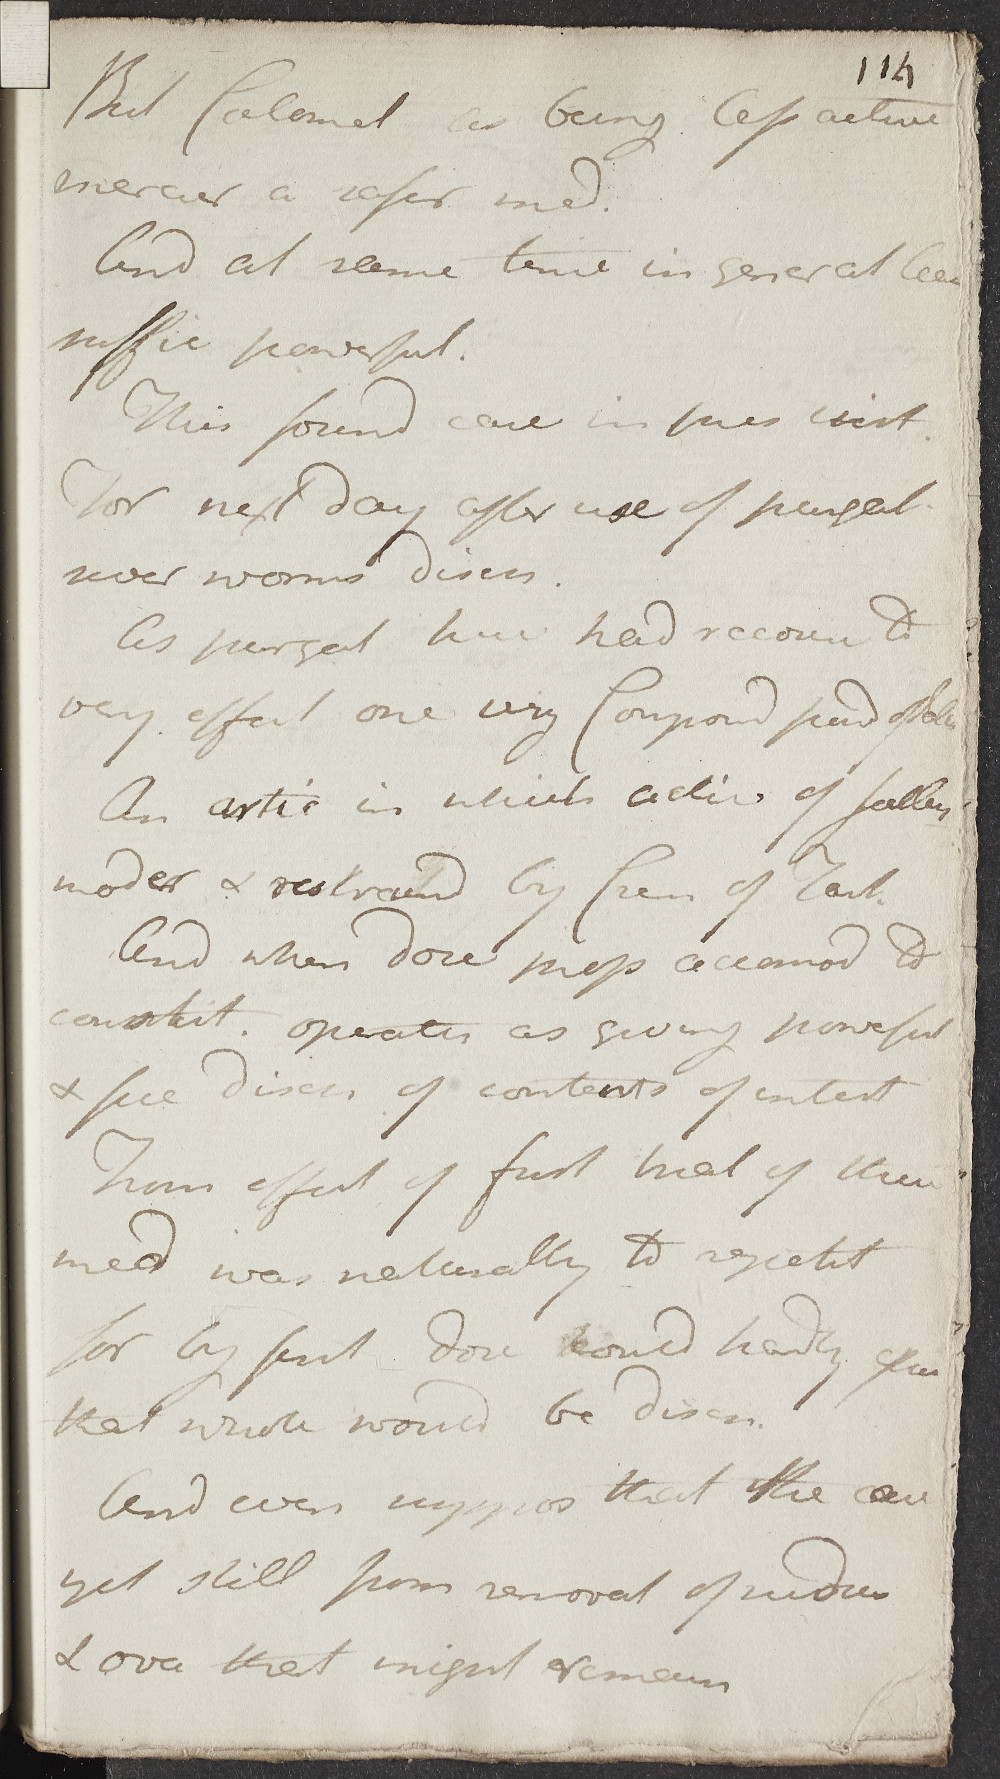 114
But Calomel as being less active
mercur a safer med.
And at same time in general
suffic powerful.
This found case in pres inst.
For next day after use of purgat.
sever worms disch.
As purgat here had recour to
very effect one viz Compound
An artic in which activ of
moder & restraind by Crem of Tart.
And when dose prop accomod to
constit. operates as giving powerful
& free disch of contents of intest
From effect of first trial of these
med was naturally to repeat it
for by first dose could hardly
that whole would be disch.
And even suppos that the case
yet still from removal of
& ova that might remain